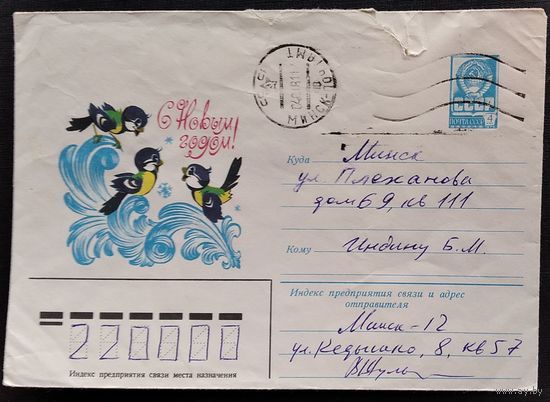 С Новым
годом!
МИНСК
ПОЧТА СССР
4
Куда Минск
ул. Плеханова
дом 69, кв 111
Кому Индину Б.М.
Индекс предприятия связи и адрес
отправителя
Минск-12
ул. Кедышко, 8, кв 57
220000
Индекс предприятия связи места назначения
www.ay.by